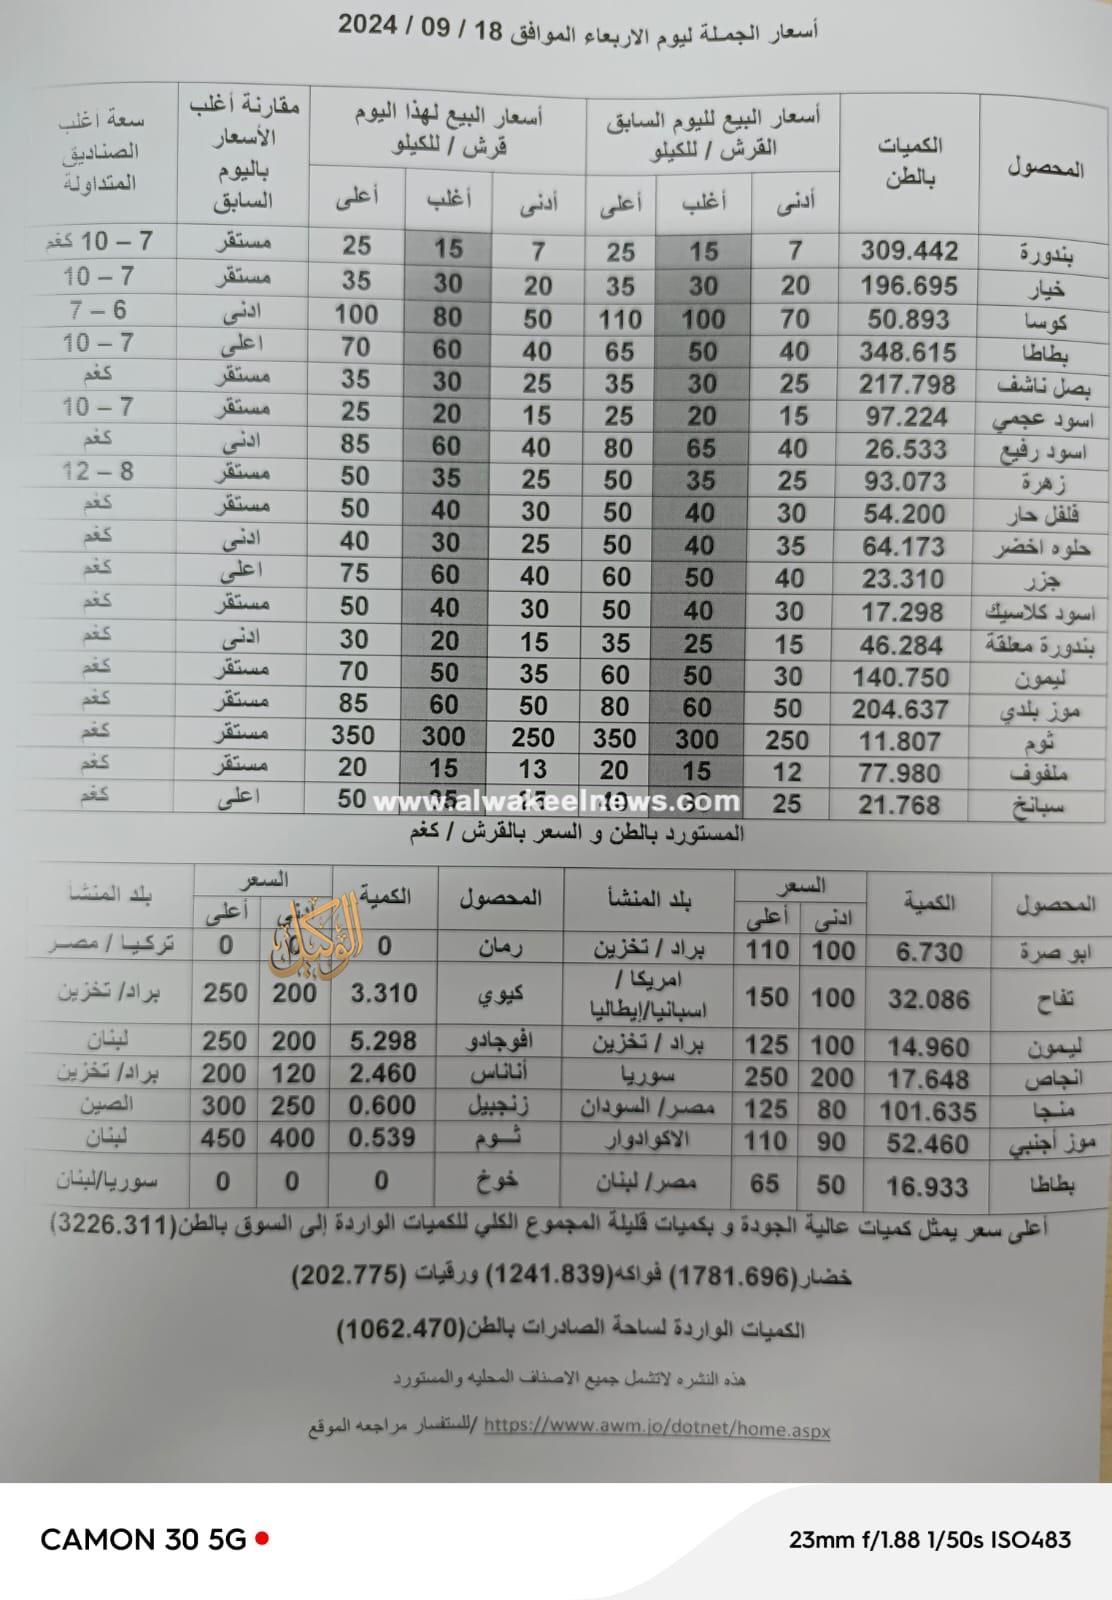 أسعار الجملة ليوم الاربعاء الموافق 18 / 09 / 2024
المحصول الكميات بالطن أسعار البيع لليوم السابق القرش / للكيلو أسعار البيع لهذا اليوم قرش / للكيلو مقارنة أغلب الأسعار باليوم السابق سعة أغلب الصناديق المتداولة
أدنى أغلب أعلى أدنى أغلب أعلى
بندورة 309.442 7 15 25 7 15 25 مستقر 7 – 10 كغم
خيار 196.695 20 30 35 20 30 35 مستقر 7 – 10
كوسا 50.893 70 100 110 50 80 100 ادنى 6 – 7
بطاطا 348.615 40 50 65 40 60 70 اعلى 7 – 10
بصل ناشف 217.798 25 30 35 25 30 35 مستقر كغم
اسود عجمي 97.224 15 20 25 15 20 25 مستقر 7 – 10
اسود رفيع 26.533 40 65 80 40 60 85 ادنى كغم
زهرة 93.073 25 35 50 25 35 50 مستقر 8 – 12
فلفل حار 54.200 30 40 50 30 40 50 مستقر كغم
حلوه اخضر 64.173 35 40 50 25 30 40 ادنى كغم
جزر 23.310 40 50 60 40 60 75 اعلى كغم
اسود كلاسيك 17.298 30 40 50 30 40 50 مستقر كغم
بندورة معلقة 46.284 15 25 35 15 20 30 ادنى كغم
ليمون 140.750 30 50 60 35 50 70 مستقر كغم
موز بلدي 204.637 50 60 80 50 60 85 مستقر كغم
ثوم 11.807 250 300 350 250 300 350 مستقر كغم
ملفوف 77.980 12 15 20 13 15 20 مستقر كغم
سبانخ 21.768 25 50 اعلى كغم
www.alwakeelnews.com
المستورد بالطن و السعر بالقرش / كغم
المحصول الكمية السعر بلد المنشأ المحصول الكمية السعر بلد المنشأ
ادنى أعلى أعلى
ابو صرة 6.730 100 110 براد / تخزين رمان 0 0 تركيا / مصر
الوكيل
تفاح 32.086 100 150 امريكا / اسبانيا/إيطاليا كيوي 3.310 200 250 براد/ تخزين
ليمون 14.960 100 125 براد / تخزين افوجادو 5.298 200 250 لبنان
انجاص 17.648 200 250 سوريا أناناس 2.460 120 200 براد/ تخزين
منجا 101.635 80 125 مصر/ السودان زنجبيل 0.600 250 300 الصين
موز أجنبي 52.460 90 110 الاكوادوار ثوم 0.539 400 450 لبنان
بطاطا 16.933 50 65 مصر/ لبنان خوخ 0 0 0 سوريا/لبنان
أعلى سعر يمثل كميات عالية الجودة و بكميات قليلة المجموع الكلي للكميات الواردة إلى السوق بالطن(3226.311)
خضار(1781.696) فواكه(1241.839) ورقيات (202.775)
الكميات الواردة لساحة الصادرات بالطن(1062.470)
هذه النشره لاتشمل جميع الاصناف المحليه والمستورد
للستفسار مراجعه الموقع/ https://www.awm.jo/dotnet/home.aspx
CAMON 30 5G
23mm f/1.88 1/50s ISO483